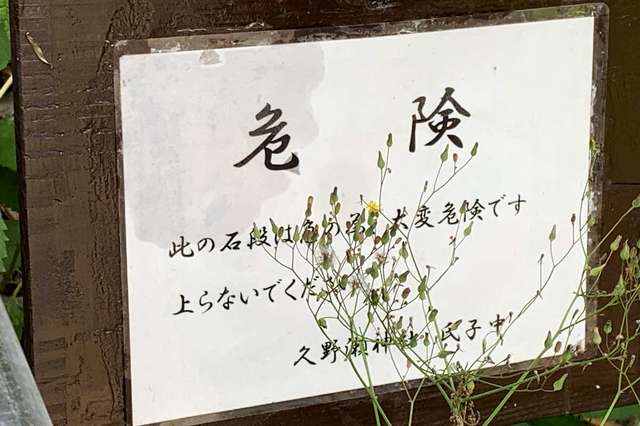 危険
此の石段は 大変危険です
上らないでくださ
久野瀬神社 氏子中